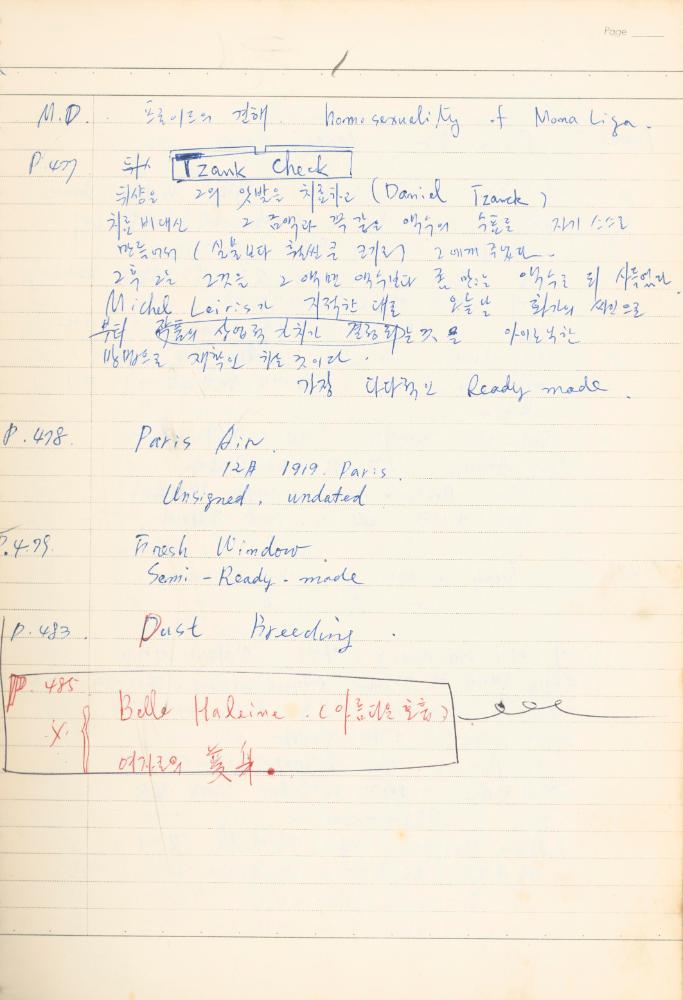 Page
M.D. 프로이트의 견해. homosexuality of Mona Liga.
P 477 Tzank Check
뒤샹은 그의 앞발을 치료하고 (Daniel Tzanck)
치료비 대신 그 금액과 꼭 같은 액수의 수표를 자기 스스로
만들어서 (실물보다 훨씬 큰 크기로) 그에게 주었다.
그후 그는 그것을 그 액면 액수보다 좀 많은 액수로 되 사들였다.
Michel Leiris가 지적한 대로 오늘날 화가의 싸인으로
부터 작품의 상업적 가치가 결정되는 것을 아이로닉한
방법으로 재확인 하는 것이다.
가장 다다적인 Ready made.
P. 478. Paris Air.
12月 1919. Paris.
Unsigned. undated
P. 479. Fresh Window
Semi-Ready-made
P. 483. Dust Breeding.
P. 485 Belle Haleine. (아름다운 호흡)
여자로의 変身.